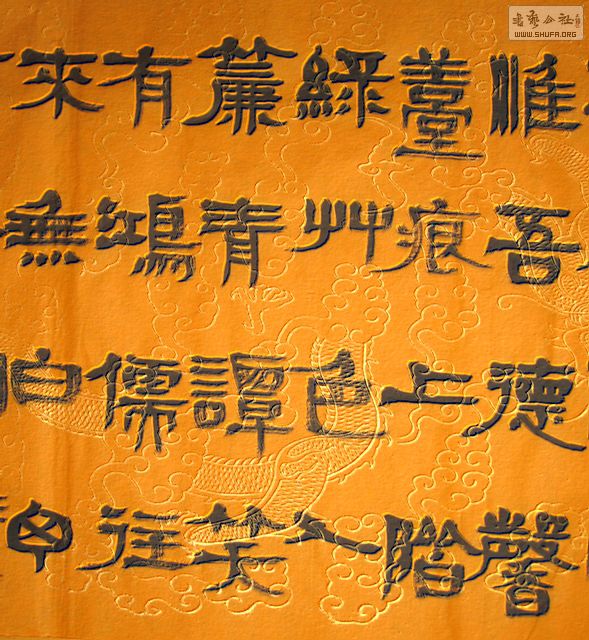 书艺公社
WWW.SHUFA.ORG
惟吾德馨
薹痕上階
綠艸色入
簾青譚笑
有鴻儒往
來無白丁